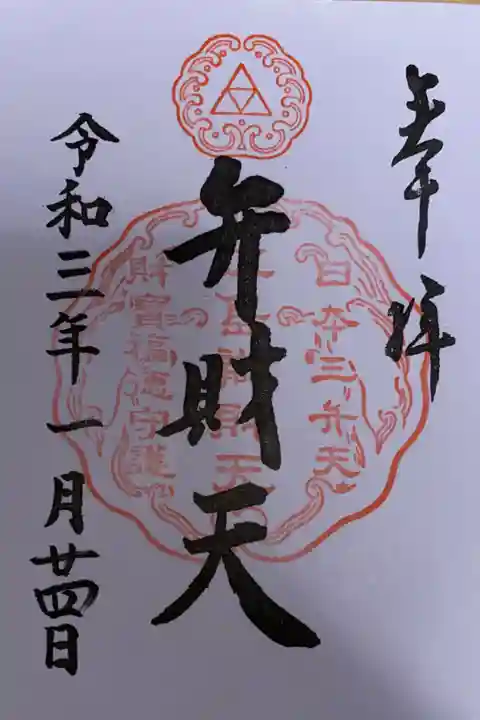 奉拝
日本三弁天
弁財天
財寳福徳守護
令和三年一月廿四日